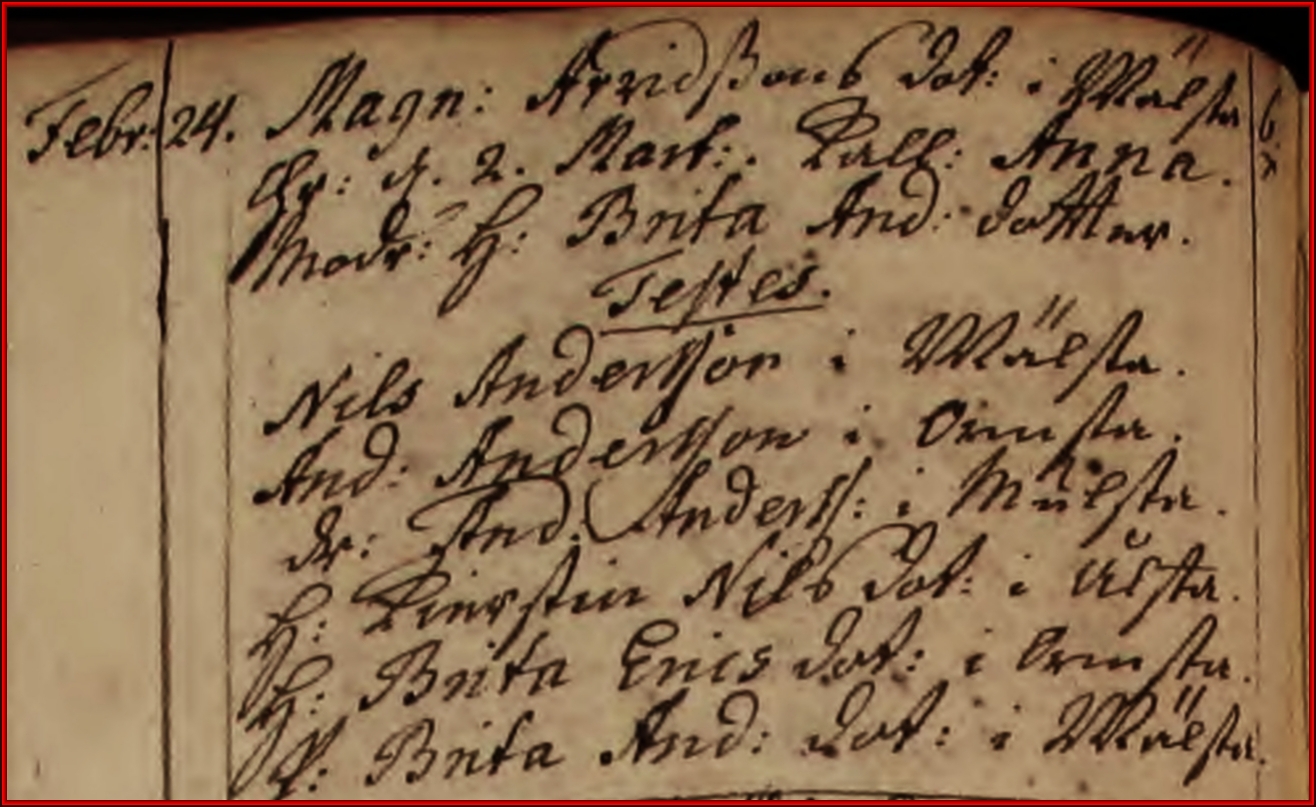 Febr: 24. Magn: Arvidßons dot: i Mälsta
Chr: d. 2. Mart: Kall: Anna.
Modr: H: Brita And: dotter.
Testes.
Nils Andersson i Mälsta.
And: Andersson i Ormsta.
dr: And: Anderss: i Mälsta.
H: Kierstin Nils dot: i Ålsta.
H: Brita Erics dot: i Ormsta.
P: Brita And: dot: i Mälsta.